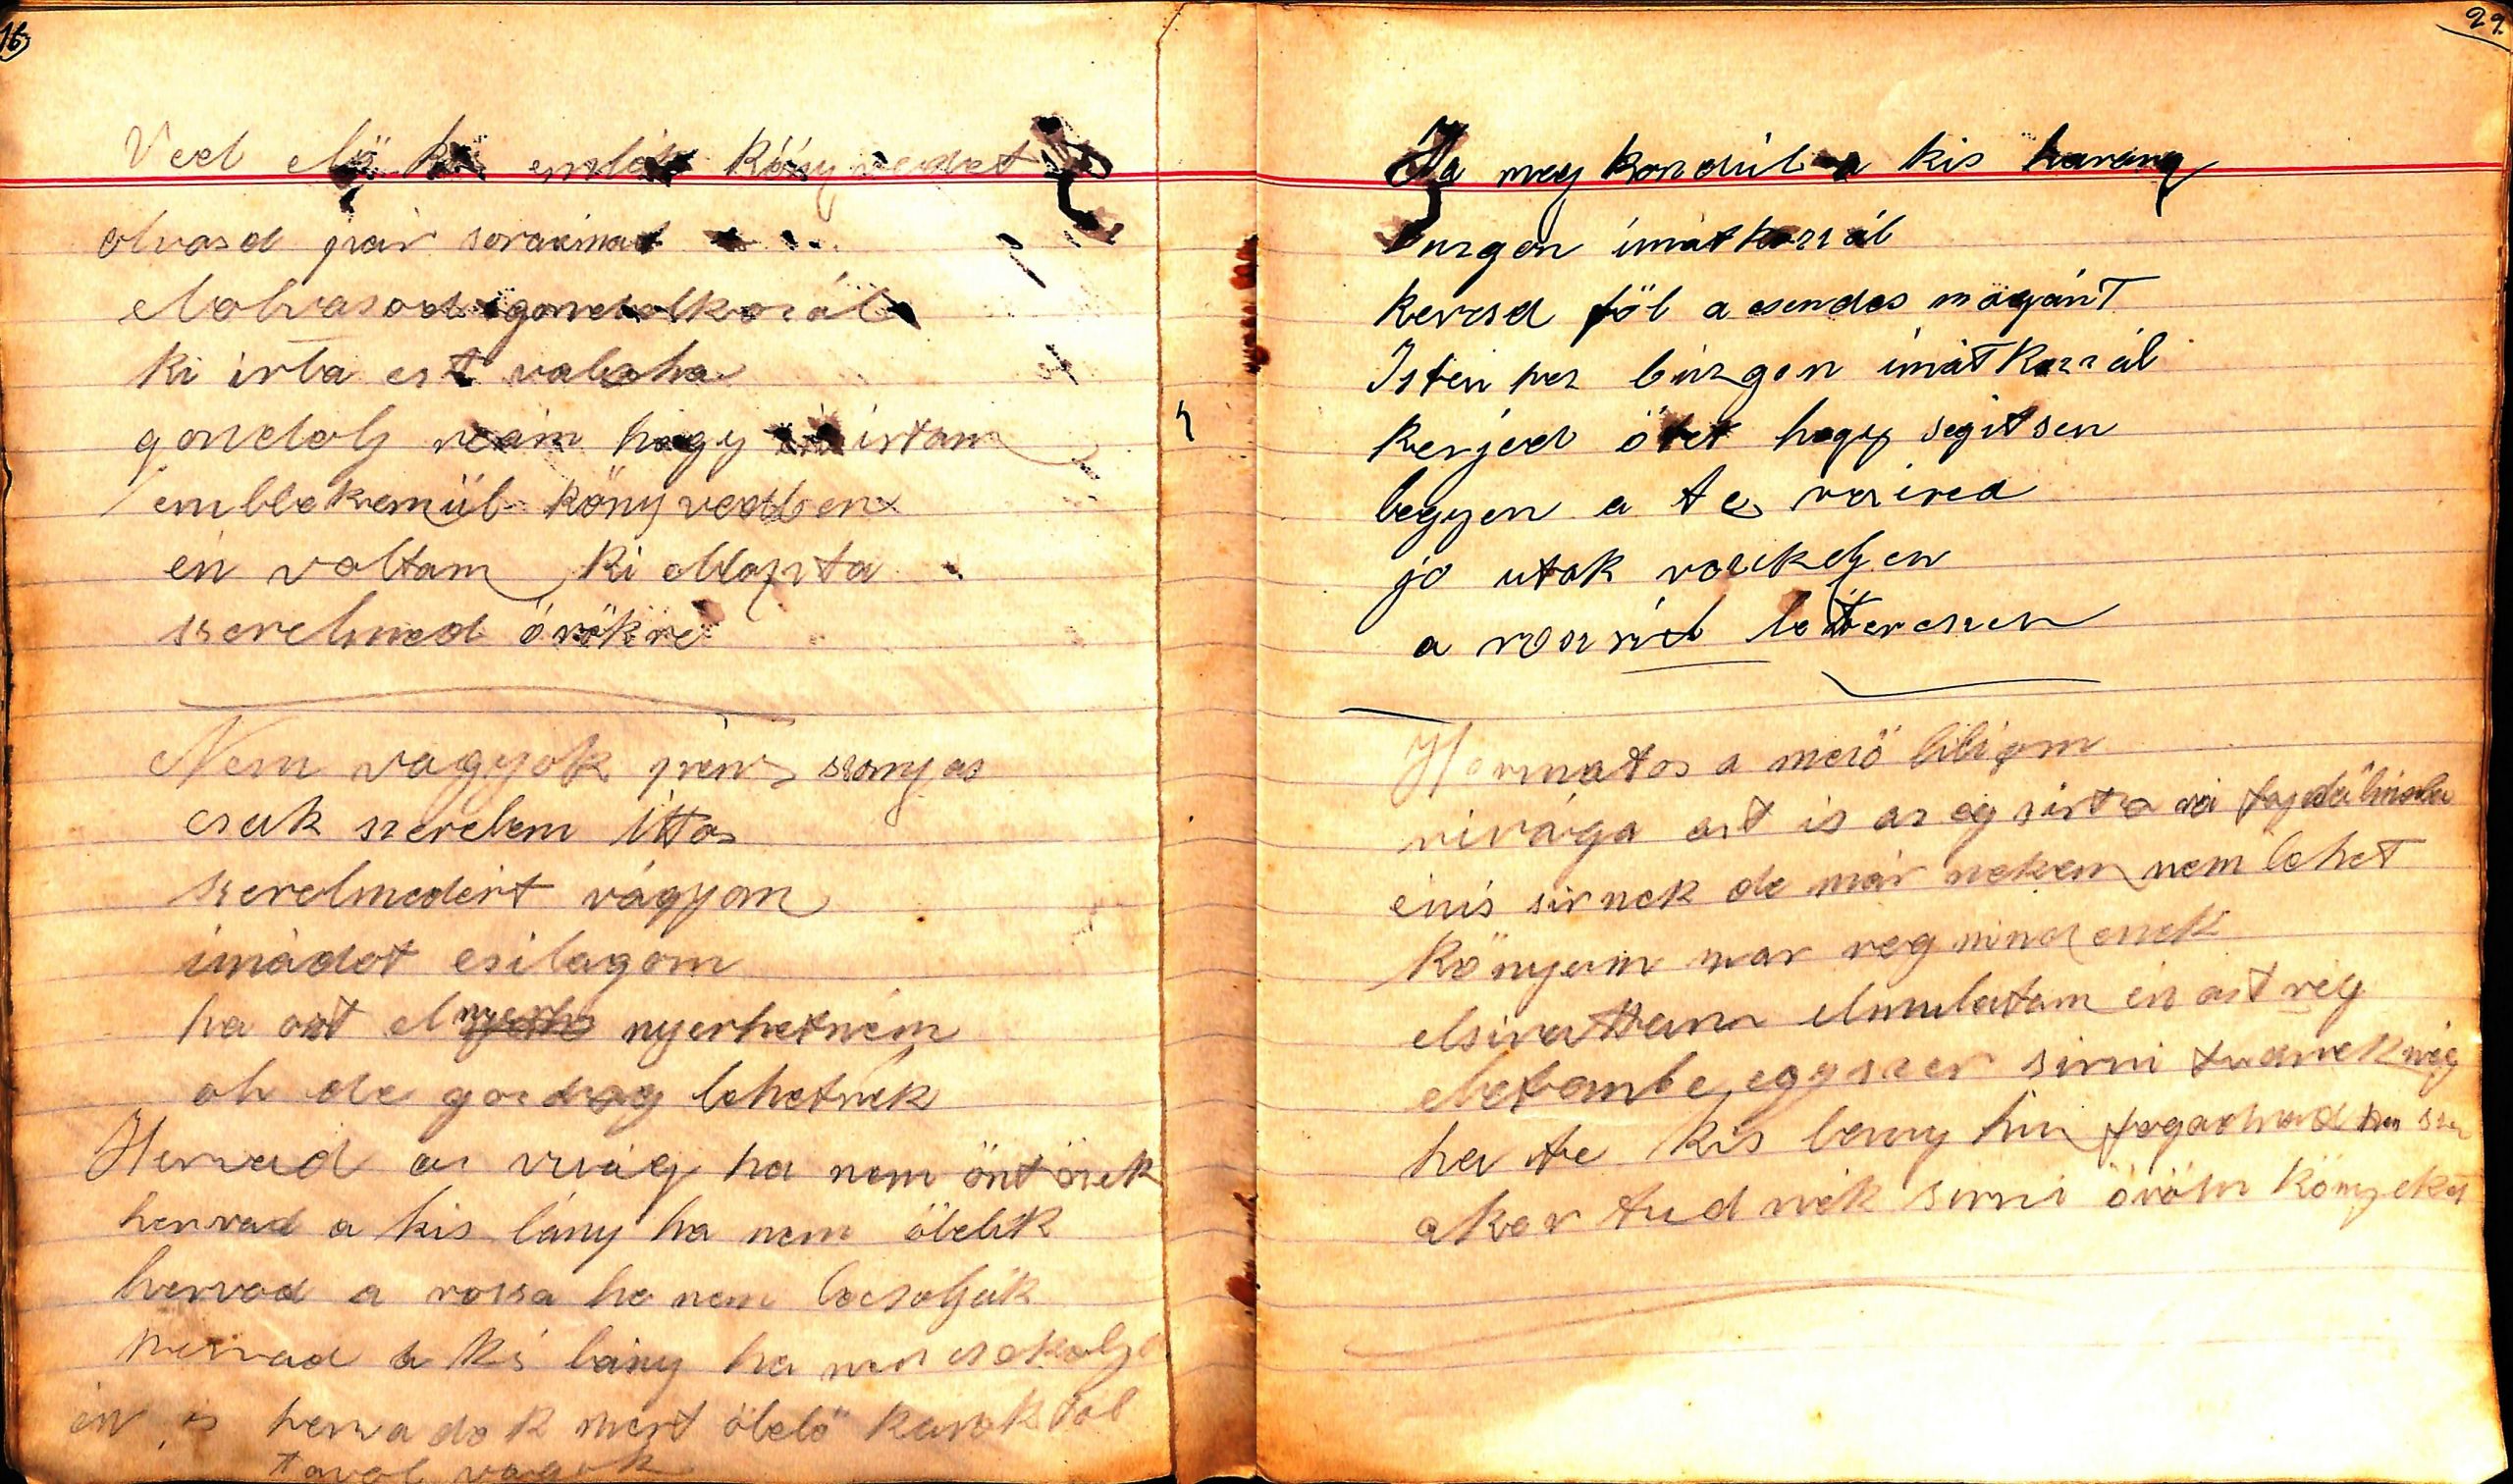 16
Ved elő kis emlék köny vedet
olvasd pár soraimat
elolvasod gondolkozál
ki irta ezt valaha
gondolj reám hogy én irtam
emblekemül köny vedben
én voltam ki ellopta
szerelmed örökre
Nem vagyok pénz szomjas
csak szerelem ittas
szerelmedért vágyom
imádot csilagom
ha azt el nyerhetném
oh de gazdag lehetnék
Hervad az virág ha nem öntözik
hervad a kis lány ha nem ölelik
hervad a rozsa ha nem locsolják
hervad a kis lány ha nem csokolj
én is hervadok mert ölelő karoktol
tavol vagyok
29.
Ha meg kondúl a kis harang
buzgon imátkozzál
keresd föl a csendes magánt
Isten hez búzgon imátkozzál
kerjed őtet hogy segitsen
legyen a te vezired
jo utak vezekeljen
a roszrúl letéreszen
Harmatos a mező liliom
virága azt is az ég sirta rá fajdalmába
énis sirnek de már nekem nem lehet
könyeim mar reg mind ennek
elsirattam elmulatam én azt rég
eletembe egyszer sirni tudnek még
ha te kis lany hű fogadnad ha
akor tudnék sirni öröm könyeket